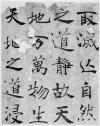 取滅亡自然
之道靜故天
地万萬物生
天地之道浸